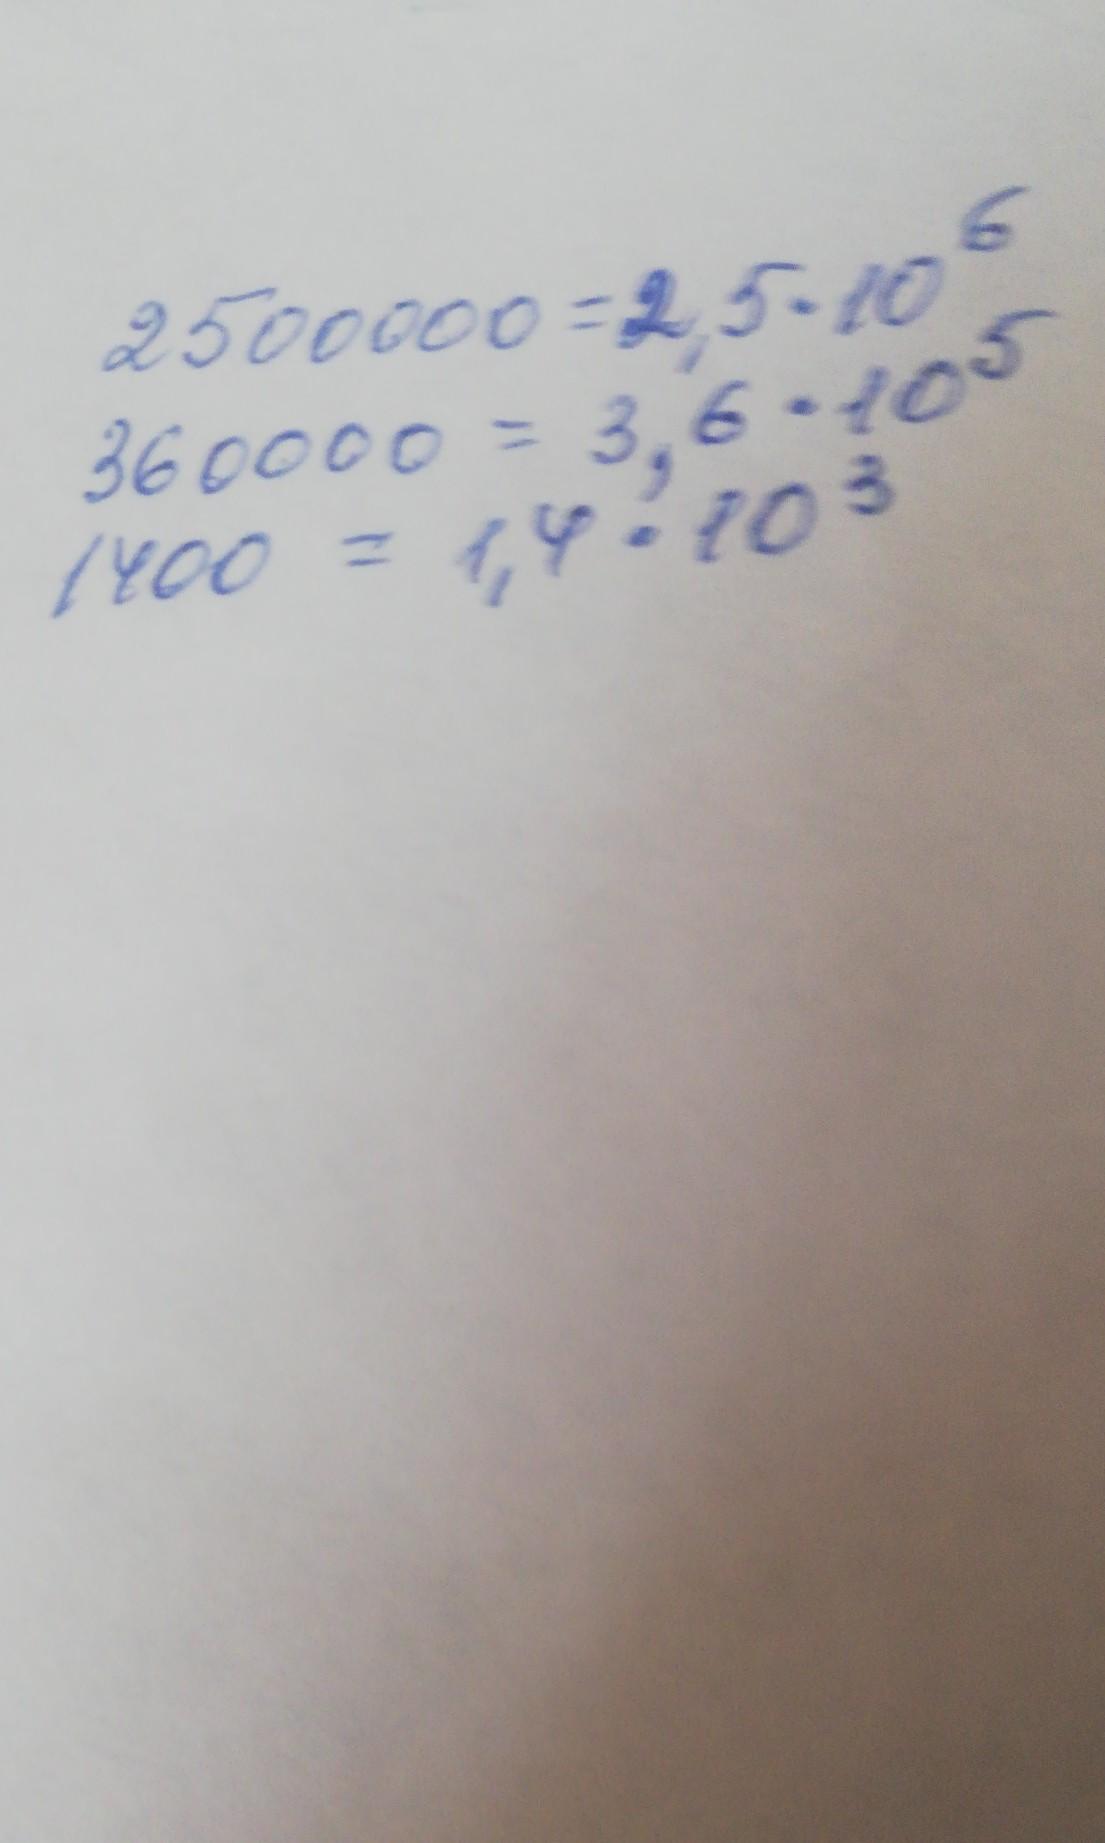 2500000 = 2,5 · 10⁶
360000 = 3,6 · 10⁵
1400 = 1,4 · 10³